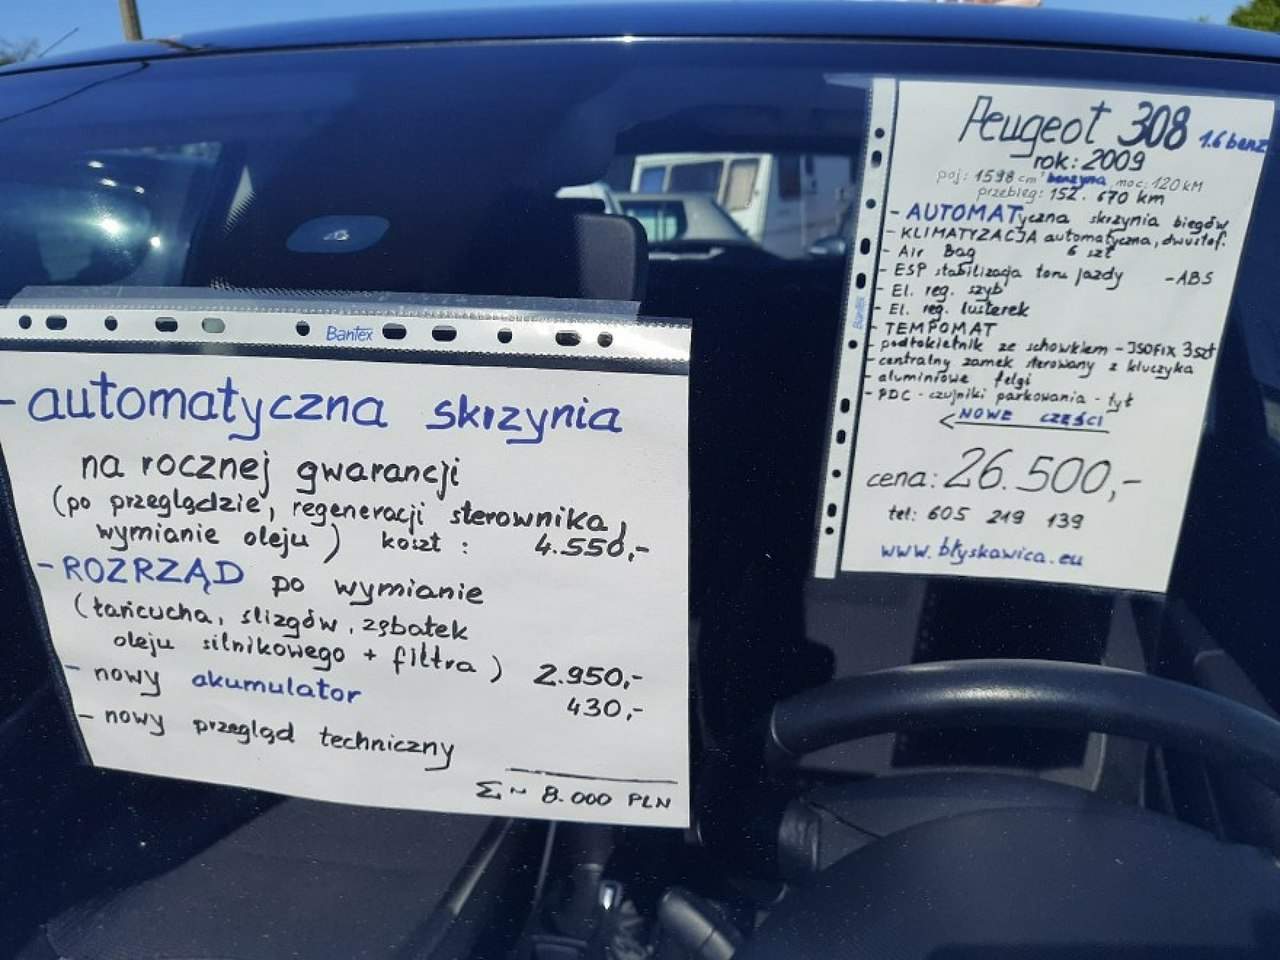 Bantex
- automatyczna skrzynia
na rocznej gwarancji
(po przeglądzie, regeneracji sterownika,
wymianie oleju) koszt : 4.550,-
- ROZRZĄD po wymianie
(łańcucha, ślizgów, zębatek
oleju silnikowego + filtra) 2.950,-
- nowy akumulator 430,-
- nowy przegląd techniczny
Σ ~ 8.000 PLN
Peugeot 308 1.6 benz
rok: 2009
poj: 1598 cm³ benzyna, moc: 120 kM
przebieg: 152.670 km
- AUTOMATyczna skrzynia biegów
- KLIMATYZACJA automatyczna, dwustef.
- Air Bag 6 szt
- ESP stabilizacja toru jazdy - ABS
- El. reg. szyb
- El. reg. lusterek
- TEMPOMAT
- podłokietnik ze schowkiem - ISOFIX 3szt
- centralny zamek sterowany z kluczyka
- aluminiowe felgi
- PDC - czujniki parkowania - tył
← NOWE CZĘŚCI
cena: 26.500,-
tel: 605 219 139
www.błyskawica.eu
Bantex